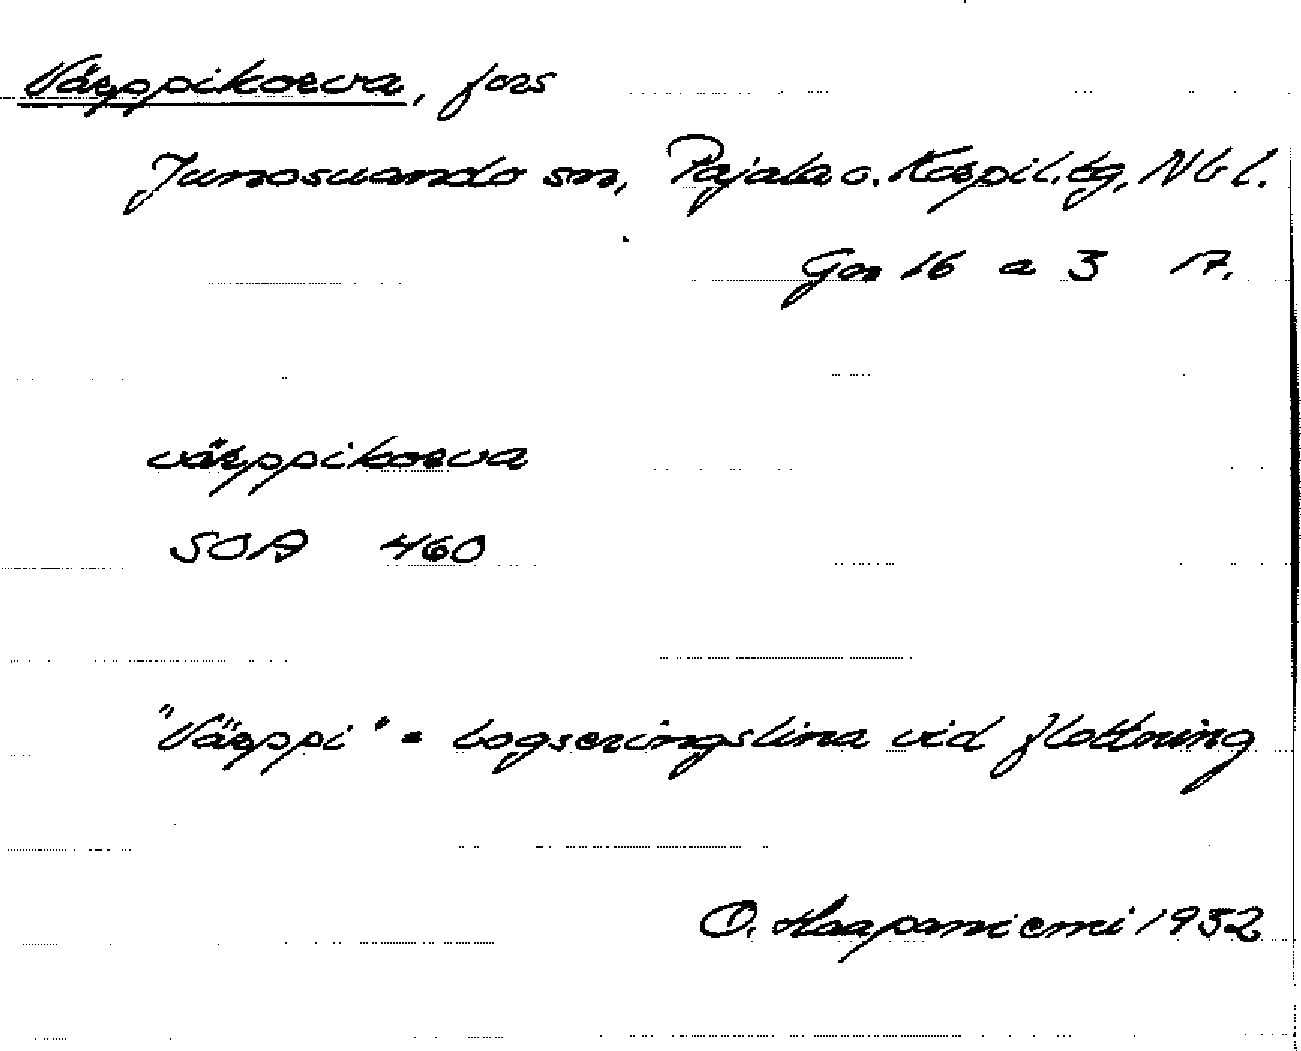 Värppikorva, fors
Junosuando sn, Pajala o. Korpil. tg, Nb l.
Gen 16 a 3 17.
värppikorva
SOA 460
"Värppi" = bogseringslina vid flottning
O. Haapaniemi 1932